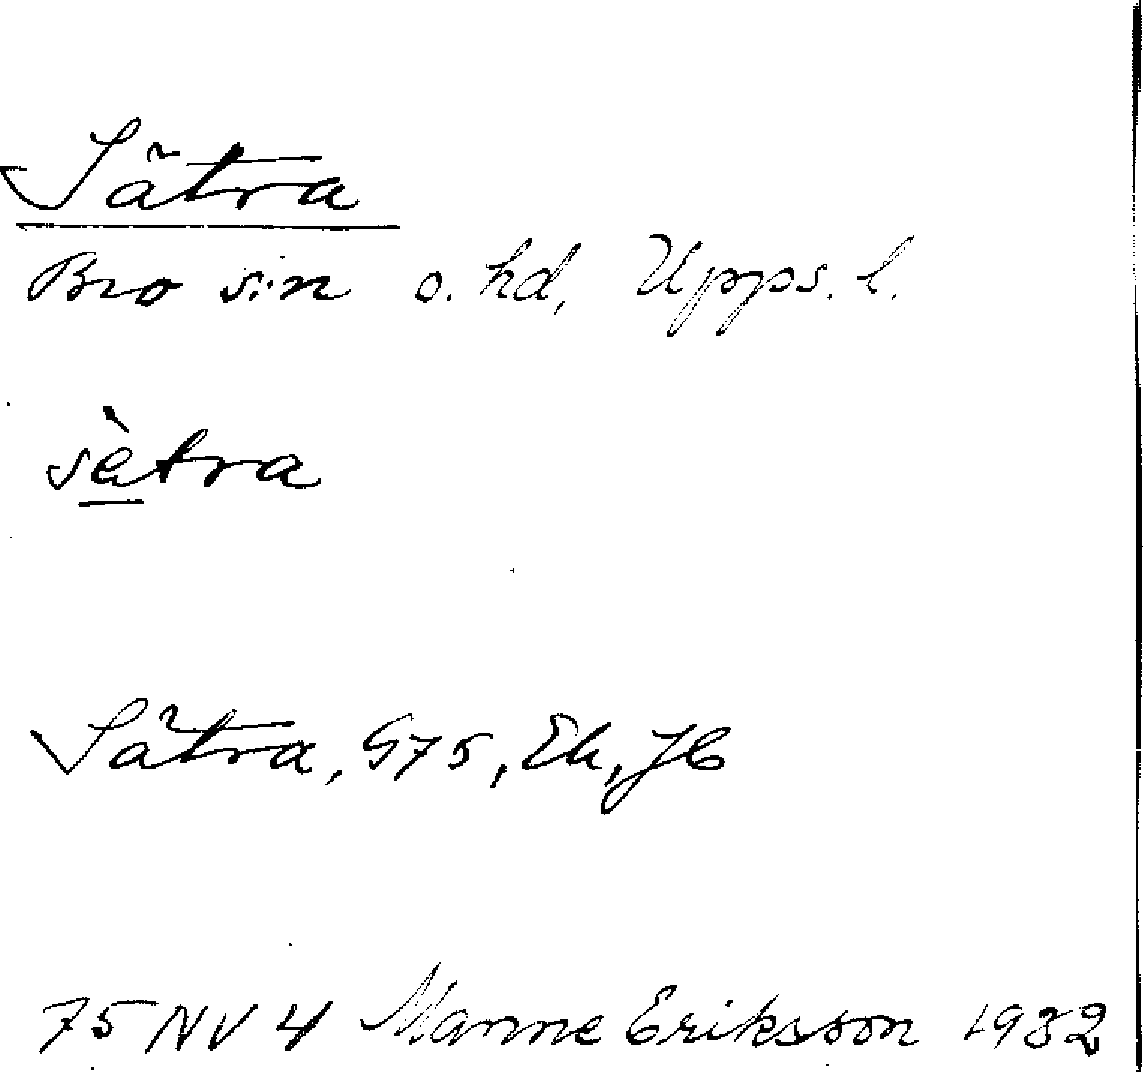 Sätra
Bro s:n o. hd, Upps. l.
sètra
Sätra, G75, Ek, JE
75 NV 4 Manne Eriksson 1932